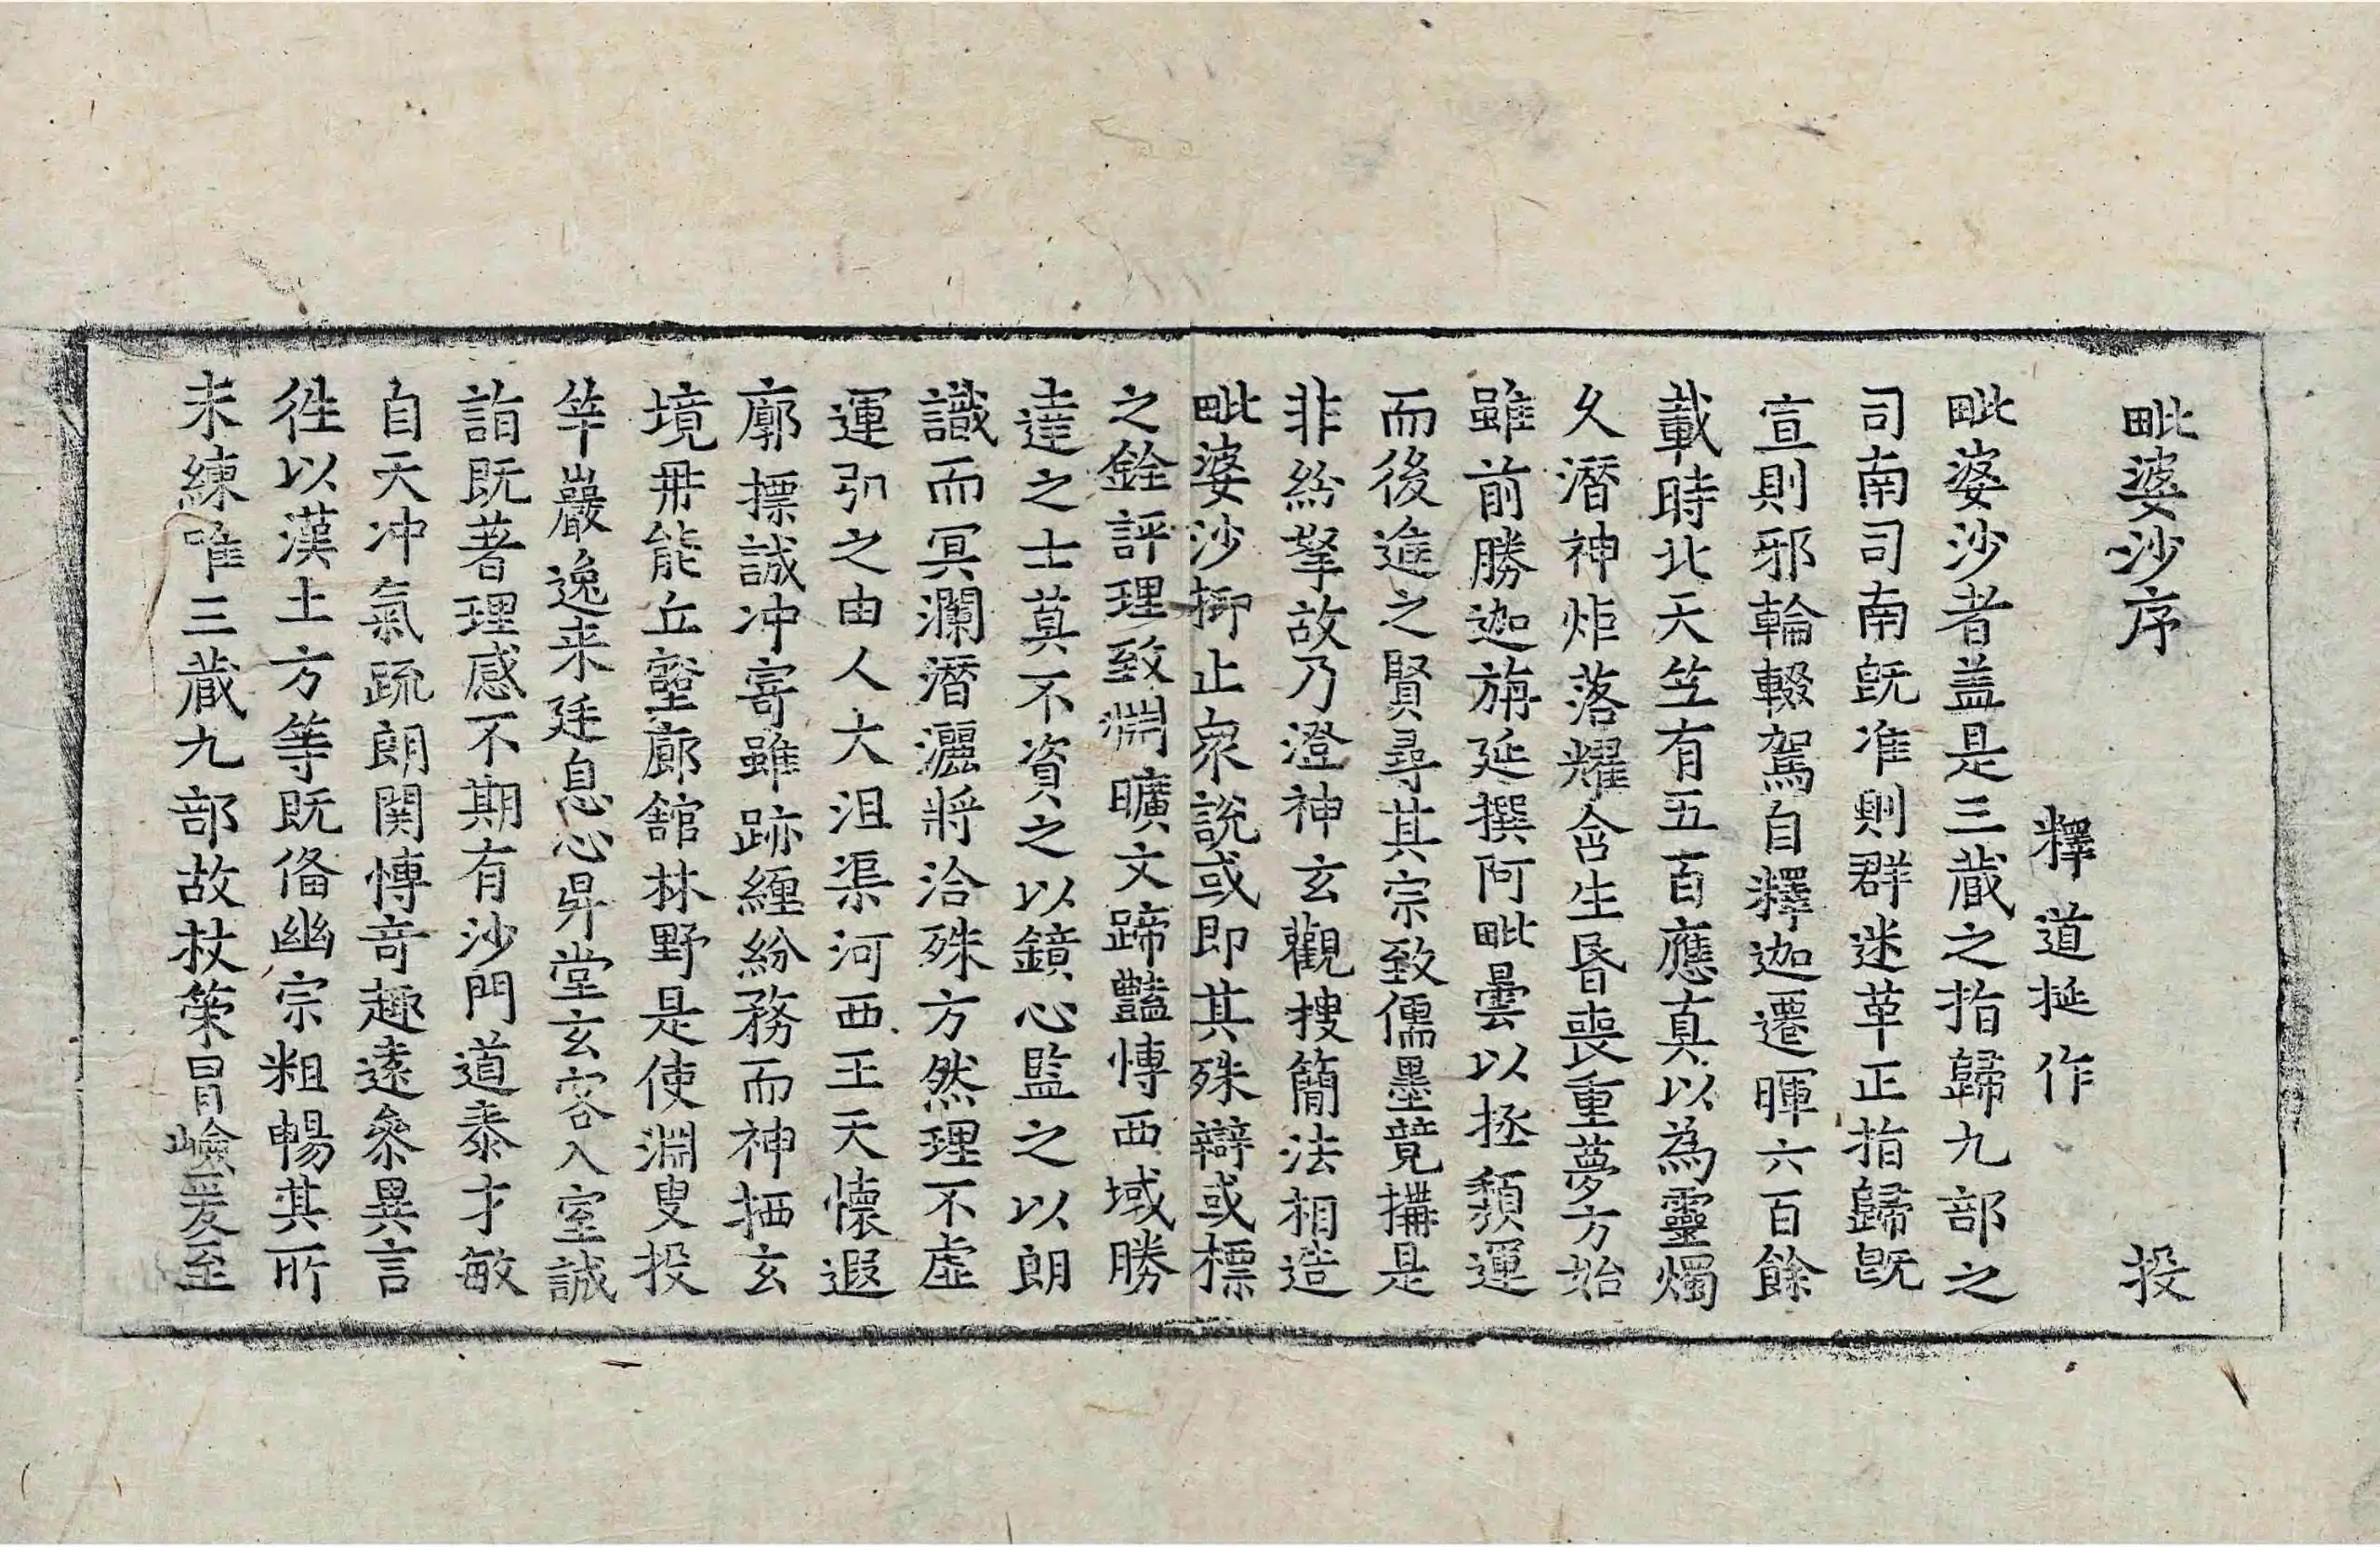 毗婆沙序 投
釋道挻作
毗婆沙者盖是三蔵之指歸九部之
司南司南旣准則群迷革正指歸旣
宣則邪輪輟駕自釋迦遷暉六百餘
載時北天笁有五百應真以為靈燭
久潛神炬落耀含生昏喪重夢方始
雖前勝迦旃延撰阿毗曇以拯頹運
而後進之賢尋其宗致儒墨競搆是
非紛拏故乃澄神玄觀搜簡法相造
毗婆沙抑止衆說或即其殊辯或標
之銓評理致淵曠文蹄豔愽西域勝
達之士莫不資之以鏡心監之以朗
識而冥瀾潛灑將洽殊方然理不虛
運引之由人大沮渠河西王天懷遐
廓摽誠冲寄雖跡纏紛務而神栖玄
境毋能丘壑廊舘林野是使淵叟投
竿巖逸来廷息心昇堂玄客入室誠
詣既著理感不期有沙門道泰才敏
自天冲氣疏朗関愽竒趣逺叅異言
徃以漢土方等既俻幽宗粗暢其所
未練唯三蔵九部故杖策冒嶮爰至